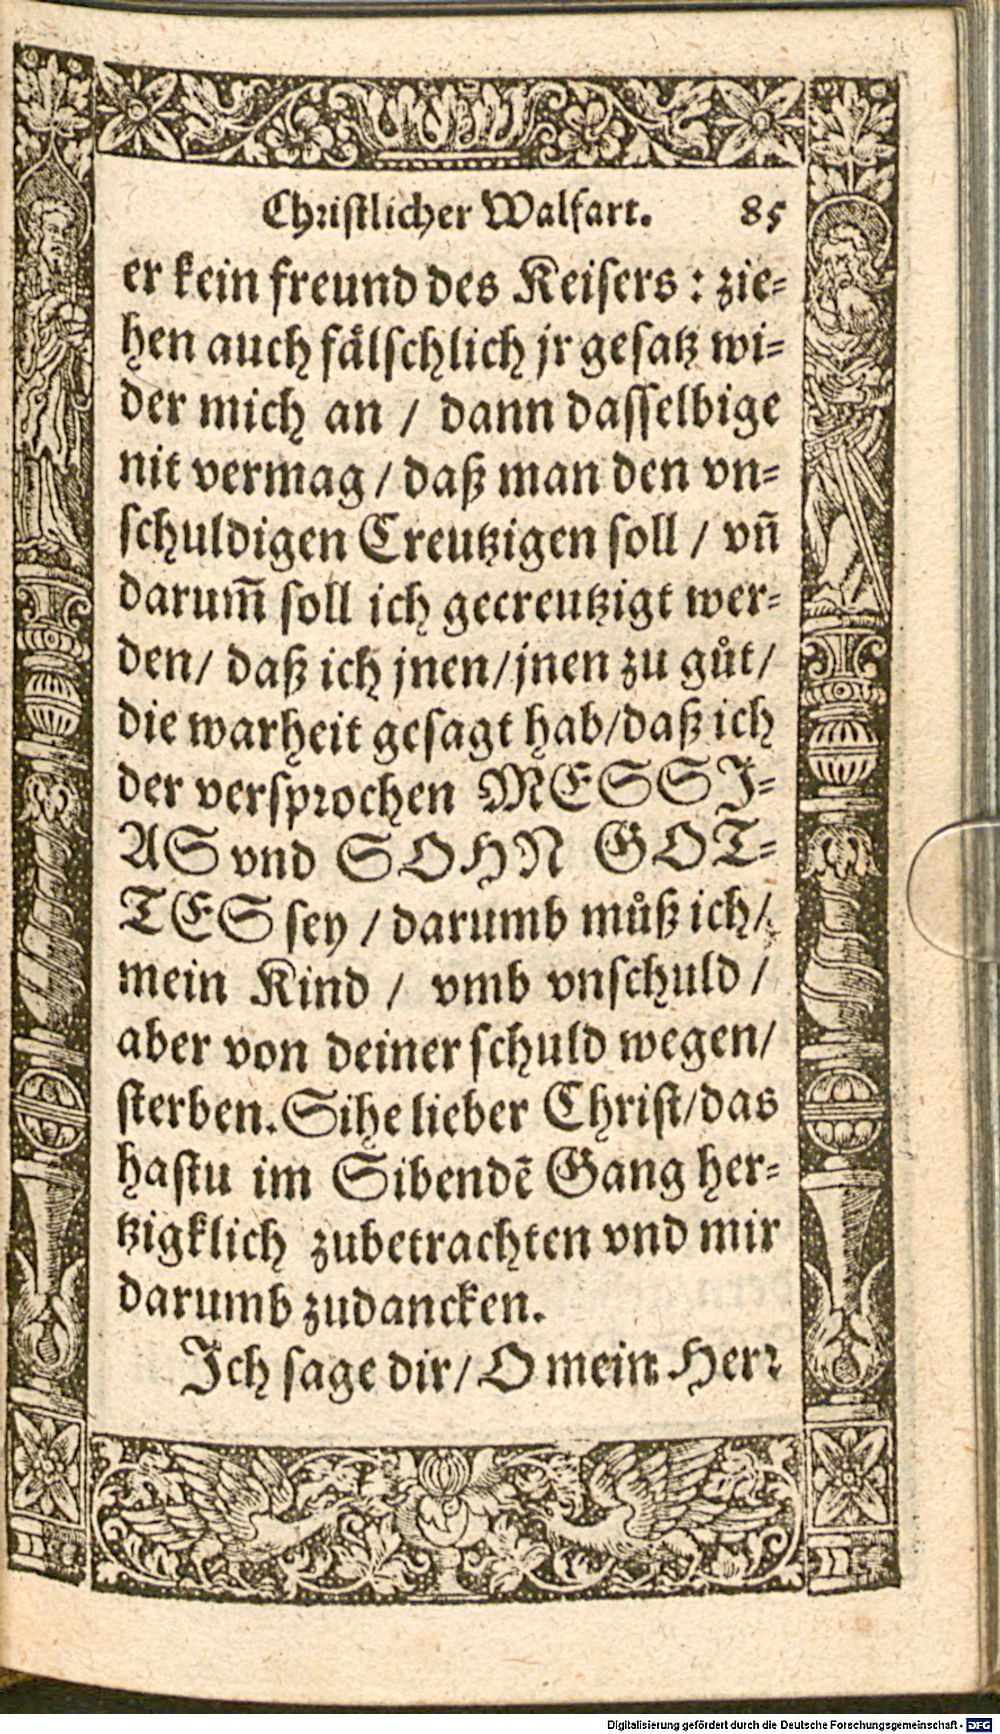 Christlicher Walfart. 85
er kein freund des Keisers : zie⸗
hen auch fålschlich jr gesatz wi⸗
der mich an / dann dasselbige
nit vermag / daß man den vn⸗
schuldigen Creutzigen soll / vn̄
darum̄ soll ich gecreutzigt wer⸗
den / daß ich jnen / jnen zu gůt /
die warheit gesagt hab / daß ich
der versprochen MESSI⸗
AS vnd SOHN GOT⸗
TES sey / darumb můß ich /
mein Kind / vmb vnschuld /
aber von deiner schuld wegen /
sterben. Sihe lieber Christ / das
hastu im Sibendē Gang her⸗
tzigklich zubetrachten vnd mir
darumb zudancken.
Ich sage dir / O mein Herr
Digitalisierung gefördert durch die Deutsche Forschungsgemeinschaft - DFG